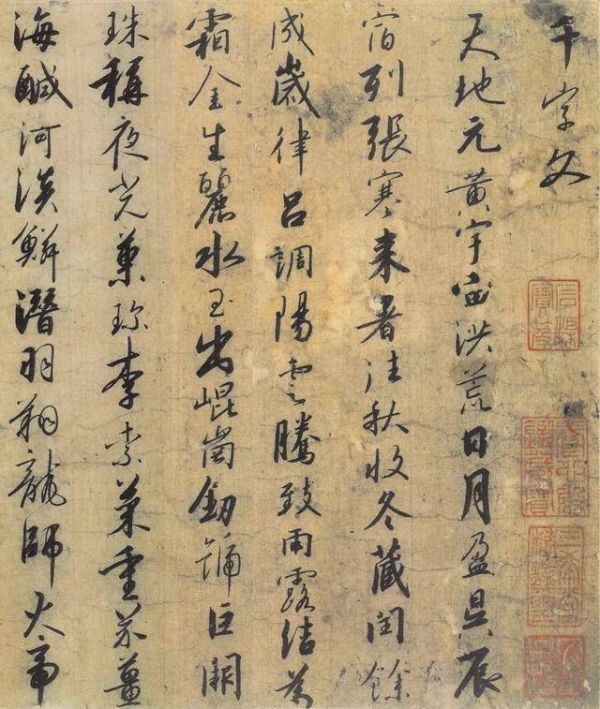 千字文
天地元黃宇宙洪荒日月盈昃辰
宿列張寒来暑往秋收冬藏閏餘
成歲律呂調陽雲騰致雨露結為
霜金生麗水玉出崐崗劒號巨闕
珠稱夜光菓珎李柰菜重芥薑
海鹹河淡鱗潛羽翔龍師火帝